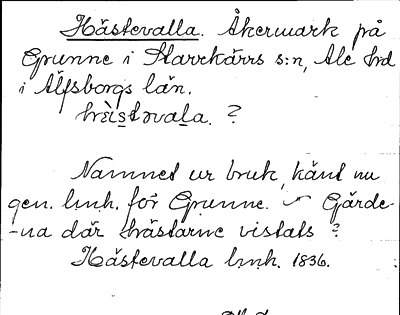 Hästevalla. Åkermark på
Grunne i Starrkärrs s:n, Ale hd
i Älfsborgs län.
hrèi̱stəvala̱. ?
Namnet ur bruk, känt nu
gen. lmh. för Grunne. ~ Gärde-
-na där hästarne vistats ?
Hästevalla lmh. 1836.